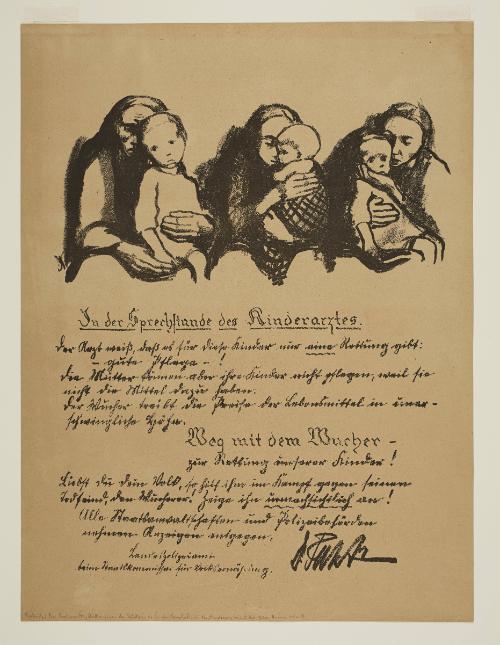 In der Sprechstunde des Kinderarztes.
Der Arzt weiß, daß es für diese Kinder nur eine Rettung gibt:
– gute Pflege –
Die Mütter können aber ihre Kinder nicht pflegen, weil sie
nicht die Mittel dazu haben.
Der Wucher treibt die Preise der Lebensmittel in uner-
schwingliche Höhe.
Weg mit dem Wucher –
zur Rettung unserer Kinder!
Liebst du dein Volk, so hilf ihm im Kampf gegen seinen
Todfeind, den Wucherer. Zeige ihn unnachsichtlich an!
Alle Staatsanwaltschaften und Polizeibehörden
nehmen Anzeigen entgegen.
Landespolizeiamt
beim Staatskommissar für Volksernährung.